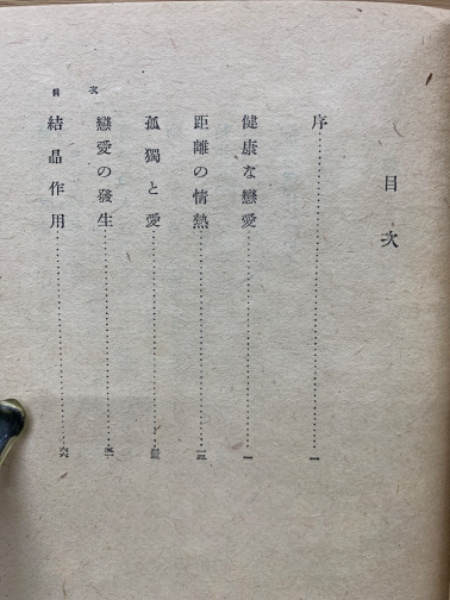 目次
序……一
健康な戀愛……一
距離の情熱……
孤獨と愛……
戀愛の發生……
結晶作用……
目次